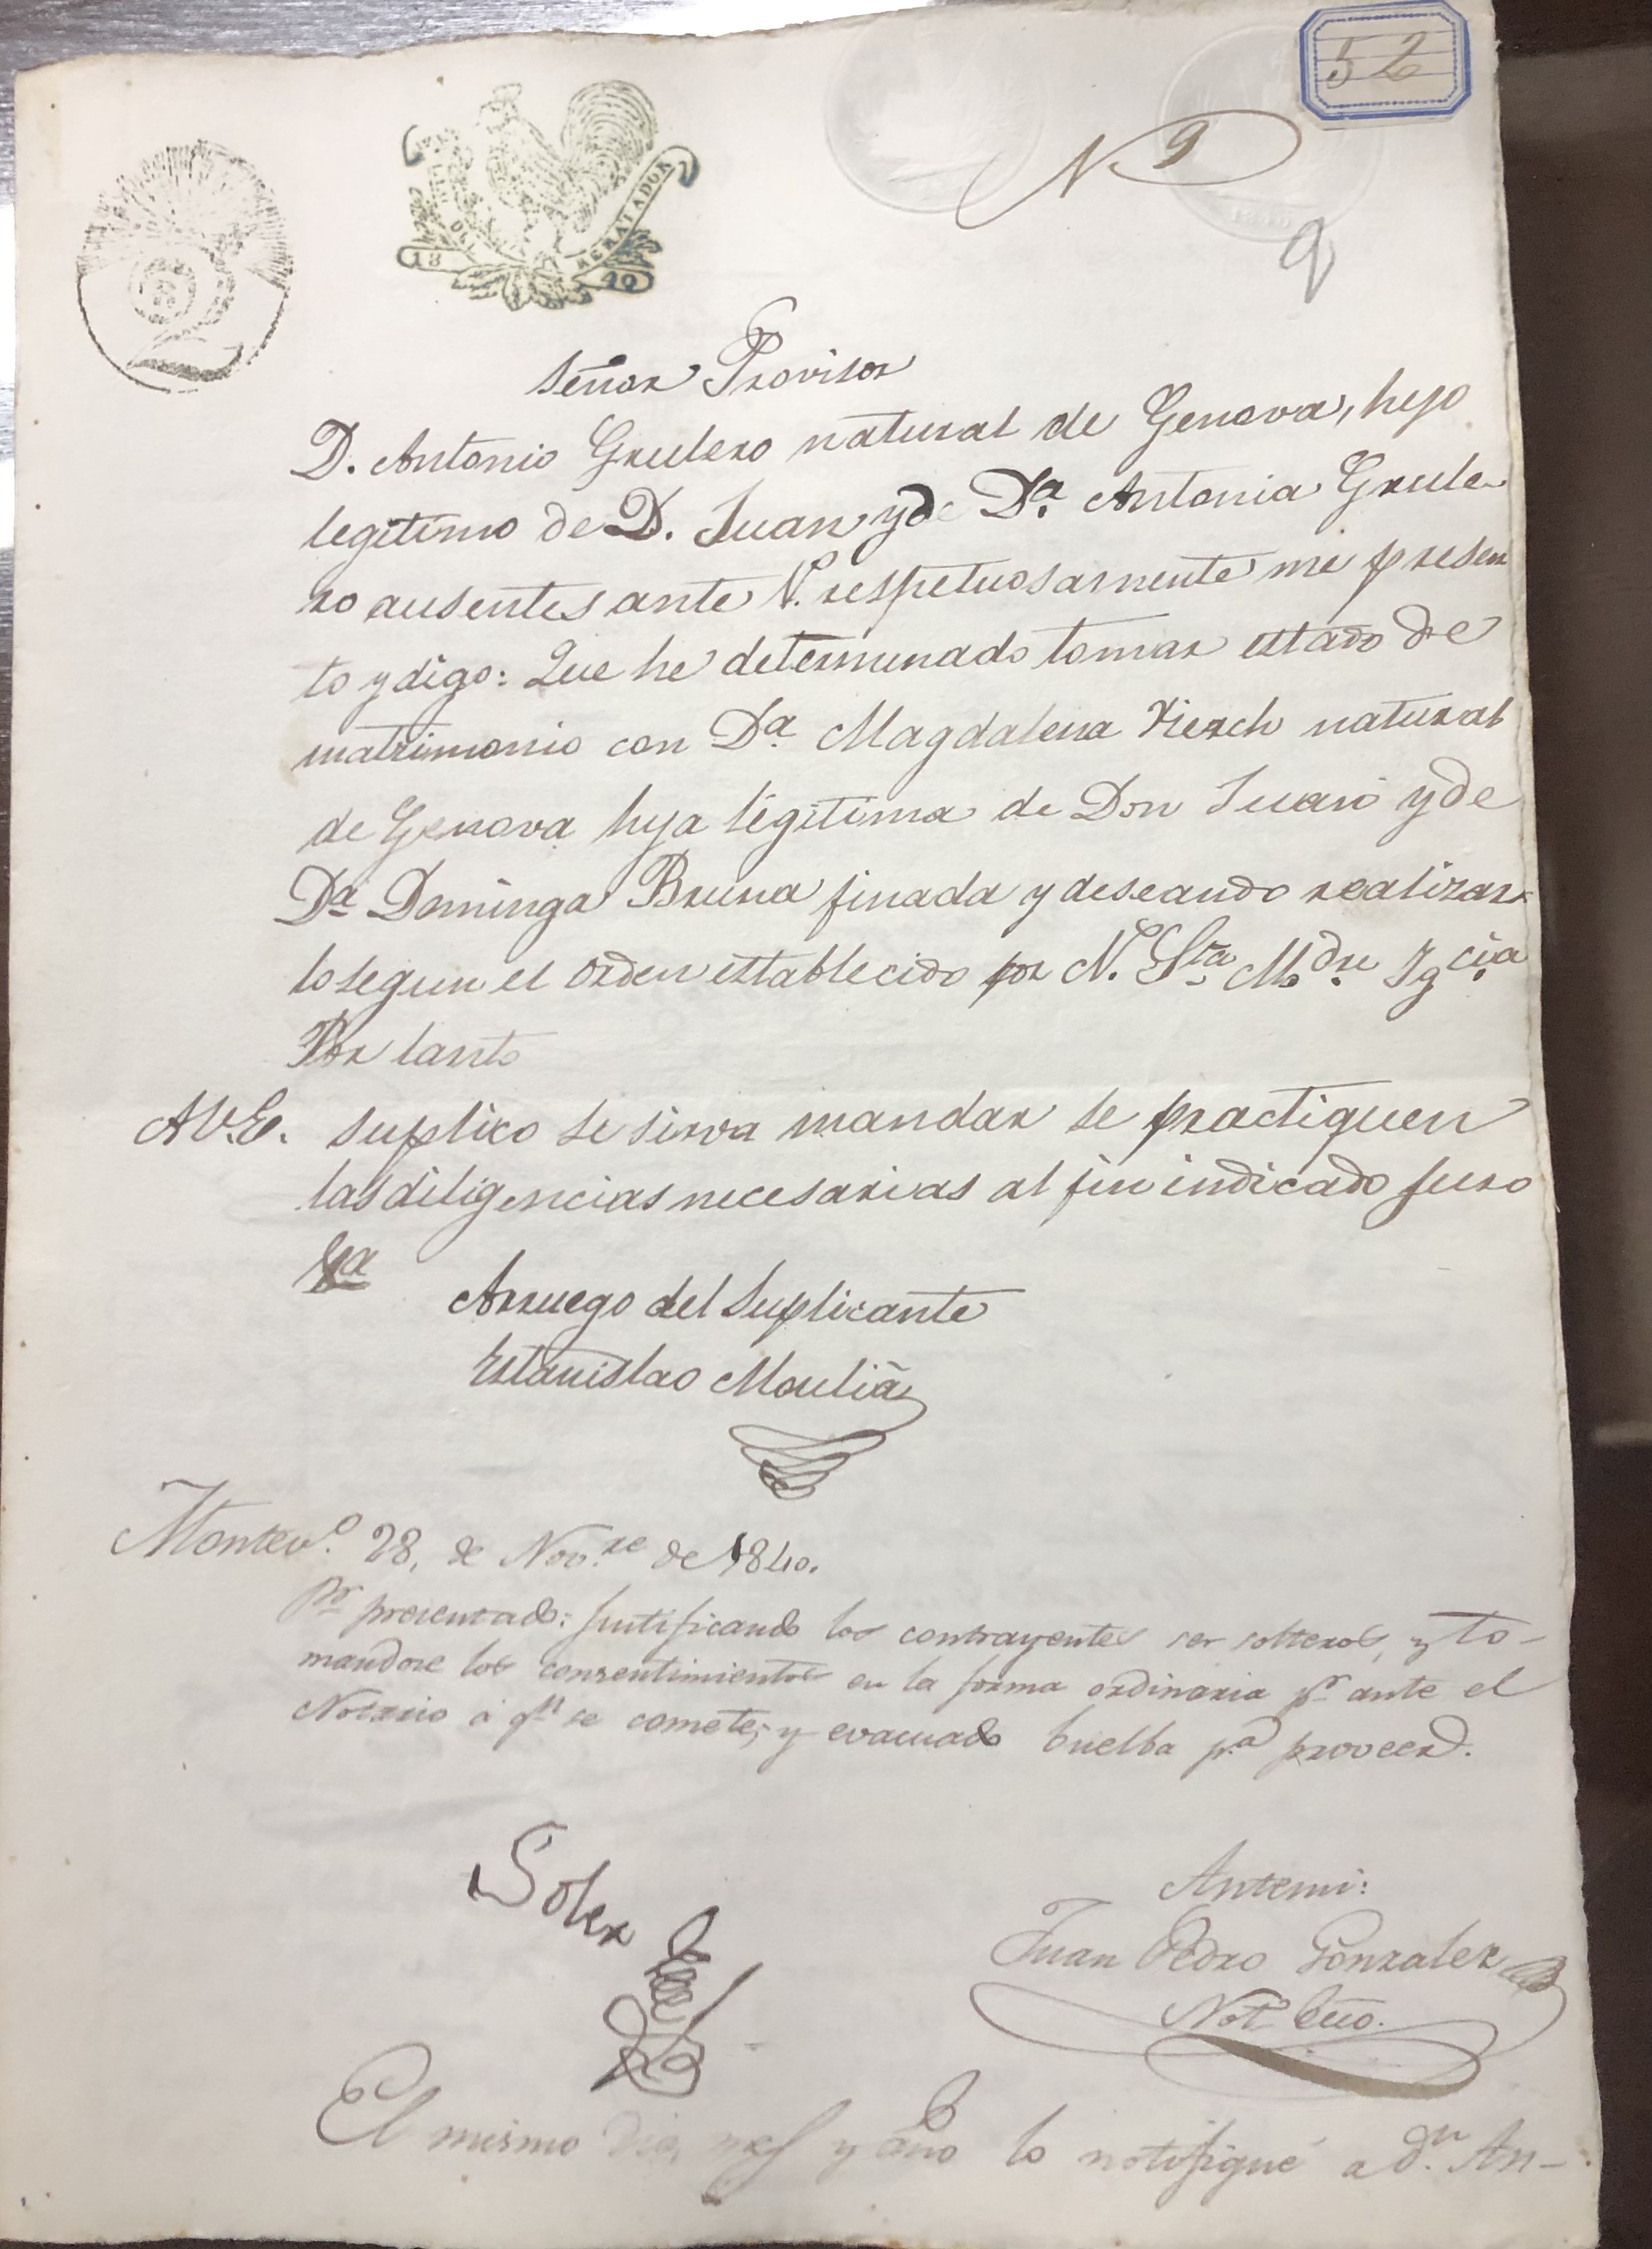 52
N. 9
9
18 40
Señor Provisor
D. Antonio Grulero natural de Genova, hijo
legitimo de D. Juan y de Da. Antonia Grule-
ro ausentes ante V. respetuosamente me presen
to y digo: Que he determinado tomar estado de
matrimonio con Da. Magdalena natural
de Genova hija legitima de Don Juan y de
Da. Dominga Bruna finada y deseando realizar-
lo segun el orden establecido por N. Sta. Mdre. Igcia.
Por tanto
A V.E. suplico se sirva mandar se practiquen
las diligencias necesarias al fin indicado juro
Arruego del Suplicante
Estanislao Mouliá
Montevo. 28, de Novre. de 1840.
Pr. presentado: justificando los contrayentes ser solteros, y to-
mandose los consentimientos en la forma ordinaria pr. ante el
Notario á qn. se comete; y evacuado buelba pa. proveerd.
Antemi:
Juan Pedro Gonzalez
Not.
El mismo dia, mes y año lo notifiqué a dn. An-